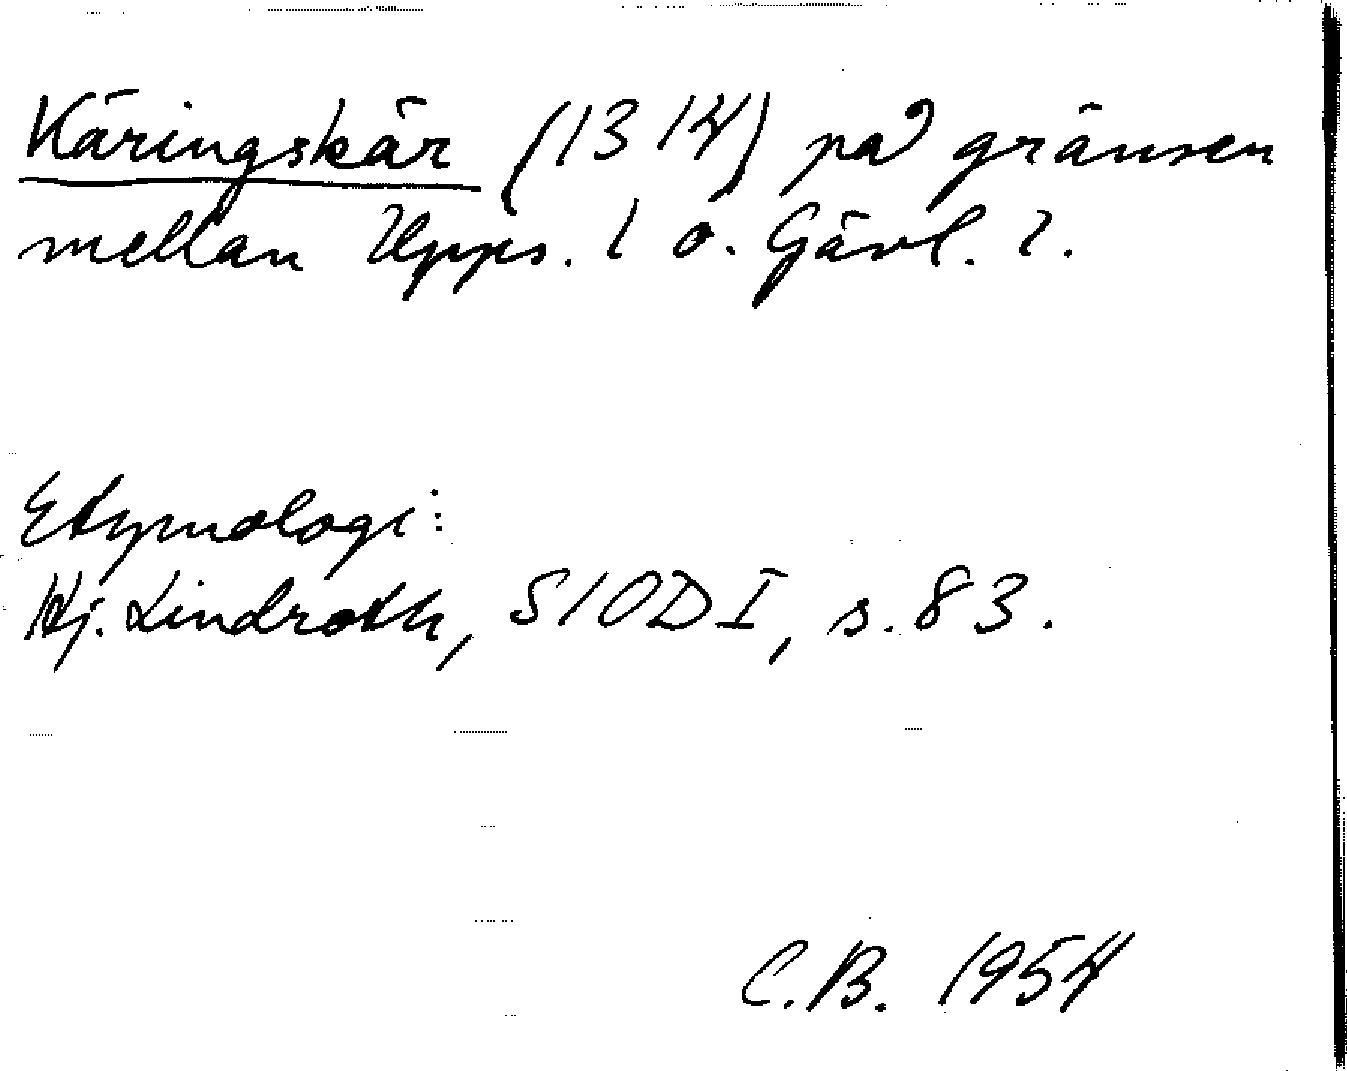 Käringskär (1314) på gränsen
mellan Upps. l o. Gävl. l.
Etymologi:
Hj. Lindroth, SIOD I, s. 83.
C.B. 1954